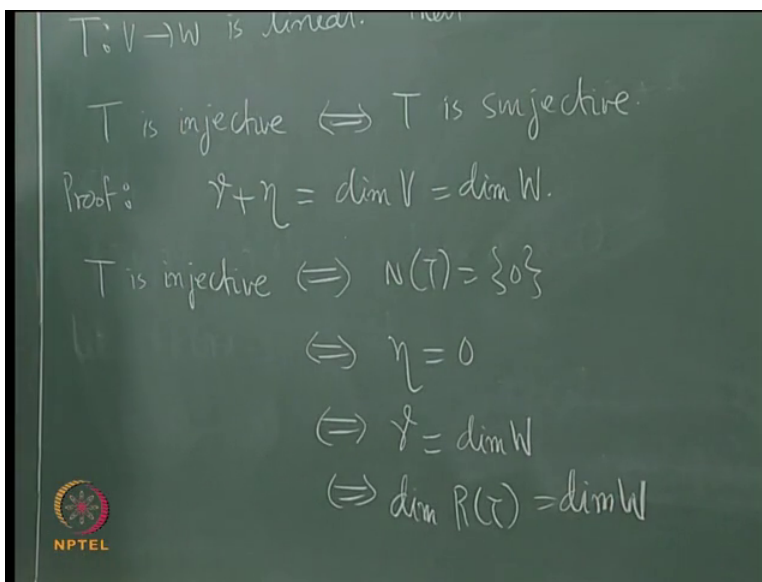 T: V → W is linear. Then
T is injective ⇔ T is surjective.
Proof: r + η = dim V = dim W.
T is injective ⇔ N(T) = {0}
⇔ η = 0
⇔ r = dim W
⇔ dim R(T) = dim W
NPTEL